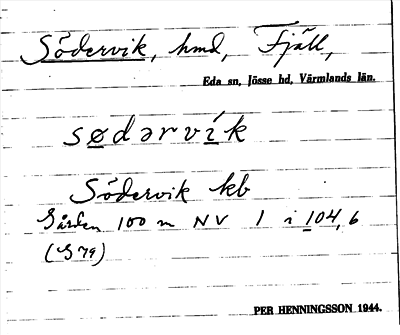 Södervik, hmd, Fjäll,
Eda sn, Jösse hd, Värmlands län.
sødərvík
Södervik kb
Gården 100 m NV 1 i 104, 6
(S 79)
PER HENNINGSSON 1944.